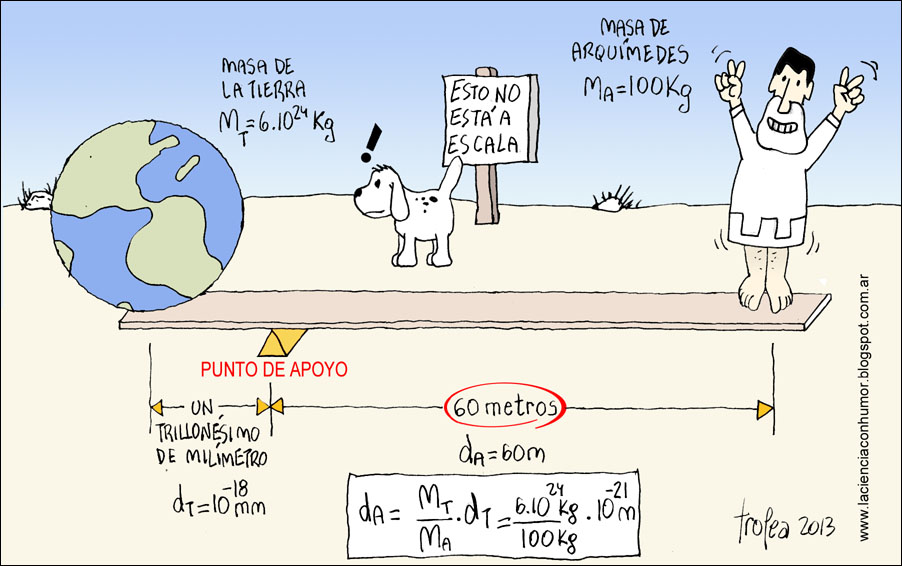 MASA DE
LA TIERRA
M_T=6.10²⁴ Kg
!
ESTO NO
ESTÁ A
ESCALA
MASA DE
ARQUÍMEDES
M_A=100Kg
PUNTO DE APOYO
UN
TRILLONÉSIMO
DE MILÍMETRO
d_T=10⁻¹⁸ mm
60 metros
d_A=60m
d_A = M_T/M_A . d_T = 6.10²⁴ Kg/100 Kg . 10⁻²¹ m
trofea 2013
www.lacienciaconhumor.blogspot.com.ar